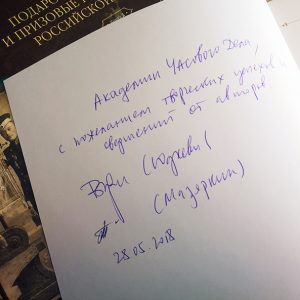 ПОДАРО
И ПРИЗОВЫЕ
РОССИЙСКОЙ
Академии Часового Дела,
с пожеланием творческих успехов и
свершений от авторов
(Мазяркин)
28.05.2018